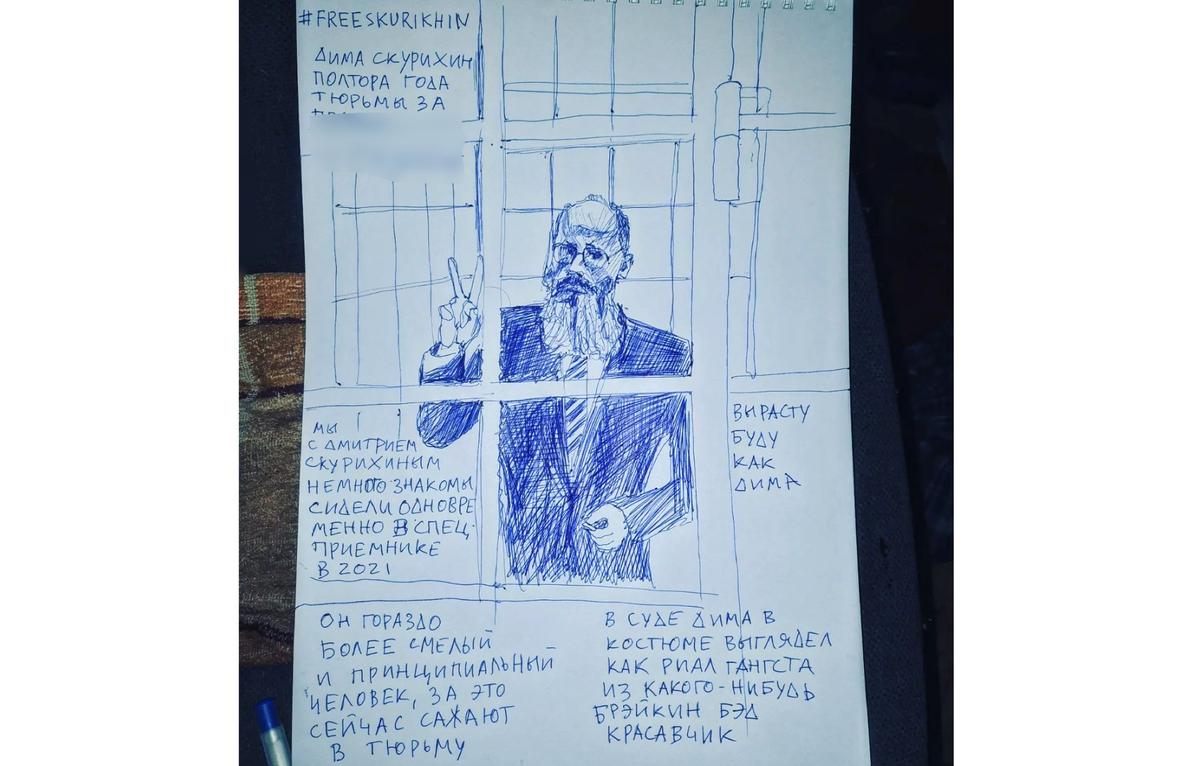 #FREESKURIKHIN
ДИМА СКУРИХИН
ПОЛТОРА ГОДА
ТЮРЬМЫ ЗА
МЫ
С ДМИТРИЕМ
СКУРИХИНЫМ
НЕМНОГО ЗНАКОМЫ
СИДЕЛИ ОДНОВРЕ
МЕННО В СПЕЦ-
ПРИЕМНИКЕ
В 2021
ВЫРАСТУ
БУДУ
КАК
ДИМА
ОН ГОРАЗДО
БОЛЕЕ СМЕЛЫЙ
И ПРИНЦИПИАЛЬНЫЙ
ЧЕЛОВЕК, ЗА ЭТО
СЕЙЧАС САЖАЮТ
В ТЮРЬМУ
В СУДЕ ДИМА В
КОСТЮМЕ ВЫГЛЯДЕЛ
КАК РИАЛ ГАНГСТА
ИЗ КАКОГО-НИБУДЬ
БРЭЙКИН БЭД
КРАСАВЧИК